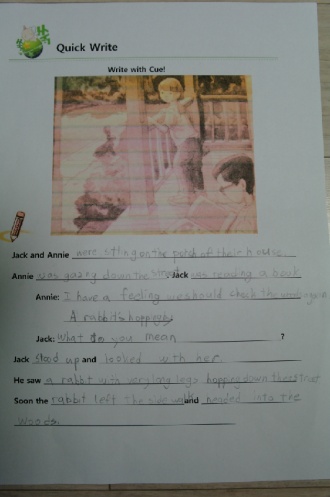 Quick Write
Write with Cue!
Jack and Annie were sitting on the porch of their house.
Annie was gazey down the street. Jack was reading a book
Annie: I have a feeling we should check the woods again
A rabbit's hopping
Jack: What do you mean ?
Jack stood up and looked with her
He saw a rabbit with very long legs hopping down the street
Soon the rabbit left the side walk and headed into the
woods.